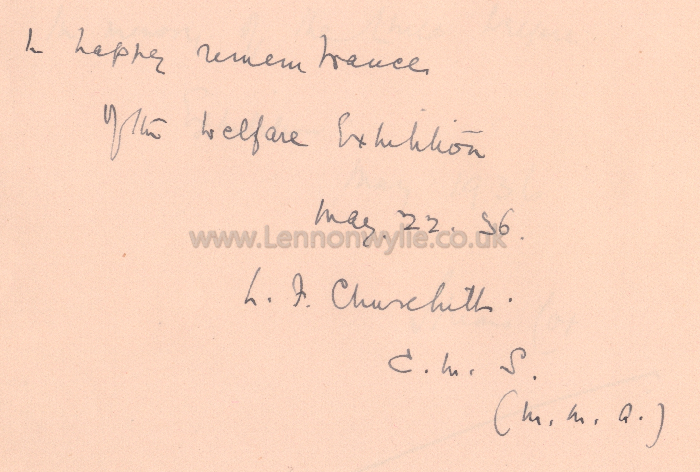 In happy remembrance
of the Welfare Exhibition
May. 22. 36.
www.Lennonwylie.co.uk
L. F. Churchill.
C. M. S.
(M. M. A.)